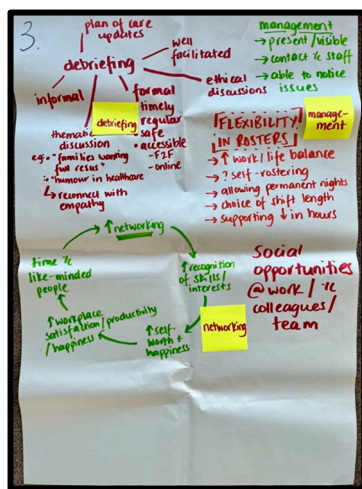 3.
plan of care
updates
debriefing
well
facilitated
ethical
discussions
informal
debriefing
formal
timely
regular
safe
• accessible
- F2F
- online
thematic
discussion
eg: • "families wanting
full resus"
• "humour in healthcare"
↳ reconnect with
empathy
management
→ present/visible
→ contact c̄ staff
→ able to notice
issues
manage-
ment
FLEXIBILITY
IN ROSTERS
→ ↑ work/life balance
→ ? self-rostering
→ allowing permanent nights
→ choice of shift length
→ supporting ↓ in hours
↑ networking
↑ recognition
of skills/
interests
↑ self-
worth +
happiness
↑ workplace
satisfaction/productivity
/happiness
time c̄
like-minded
people
networking
Social
opportunities
@ work / c̄
colleagues/
team